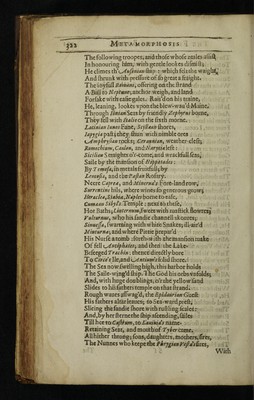 322 METAMORPHOSIS
The following troopes, and those whose states
In honouring him, with gentle lookes delights
He climes th' Ausonian ship; which feles the waight,
And shrunk with pressure of so great a fraight.
The ioyfull Romans, offering on the strand
A Bull to Neptune, anchor weigh, and land
Forsake with easie gales. Rais'd on his traine,
He, leaning, lookes vpon the blew-wav'd Maine.
Through Ionian Seas by friendly Zephyrus borne,
They fell with Italie on the sixth morne.
Lacinian Iunos Fane, Scyllean shores,
Iapygia past; they shun with nimble ores
Amphrysian rocks; Ceraunian, weather-cleft;
Romechium, Caulon, and Narycia left:
Sicilian streights o'r-come, and wrackfull seas,
Saile by the mansion of Hippotades
By Temesa, in metals fruitfull; by
Leucosia, and the Pæstan Rosary.
Neere Caprea, and Minerua's Fore-land row;
Surrentine hils, where wines so generous grow;
Heraclea, Stabia, Naples borne to ease,
Cumæan Sibyl's Temple: next to these,
Hot Baths; Linternum, sweet with mastick flowers;
Vulturnus, who his sandie channell skoures;
Sinuessa, swarming with white Snakes; ill-air'd
Minturna; and where Piëtie prepar'd
His Nurse a tomb:
Of fell Antiphates; and then the Lake-
Besieged Trachas: thence directly bore
To Circe's Ile; and Antium's hard shore.
The Sea now swelling high, this harbor holds
The Saile-wing'd ship. The God his orbs vnfolds;
And, with huge doublings, o'r the yellow sand
Slides to his fathers temple on that strand.
Rough waters asswag'd, the Epidaurian Guest
His fathers altar leaues; to Sea-ward prest,
Slicing the sandie shore with rustling scales:
And, by her sterne the ship ascending, failes
Till hee to Castrum, to Lauinia's name
Retaining Seat, and mouth of Tyber came.
All hither throng; sons, daughters, mothers, sires,
The Nunnes who keepe the Phrygian Vesta's fires,
With